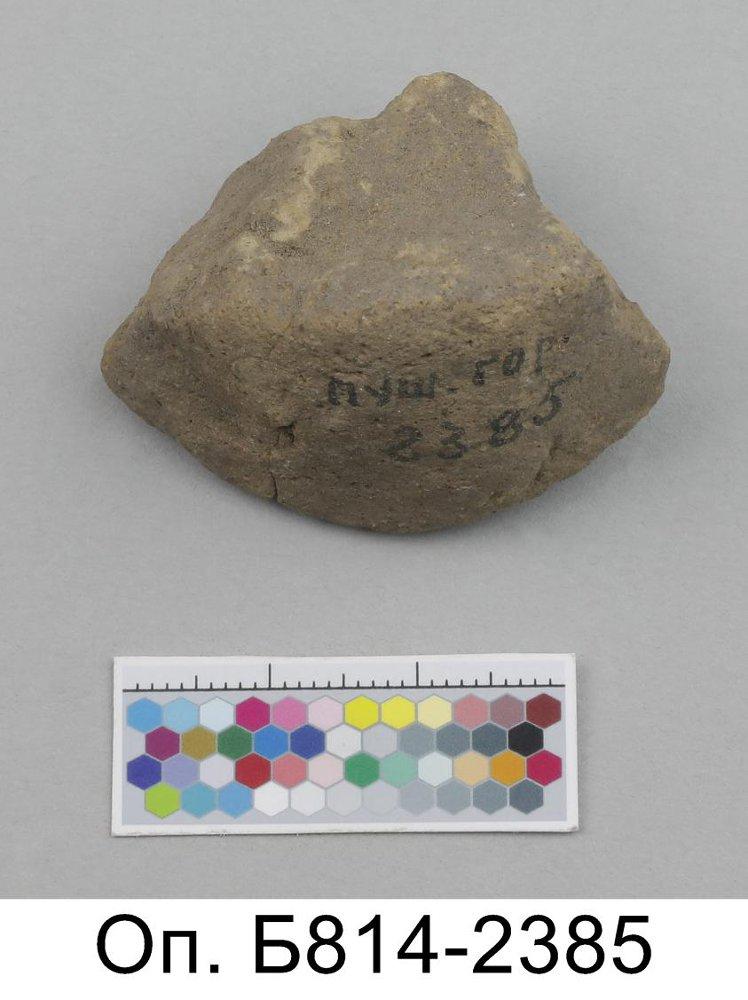 пуш. гор
2385
Оп. Б814-2385